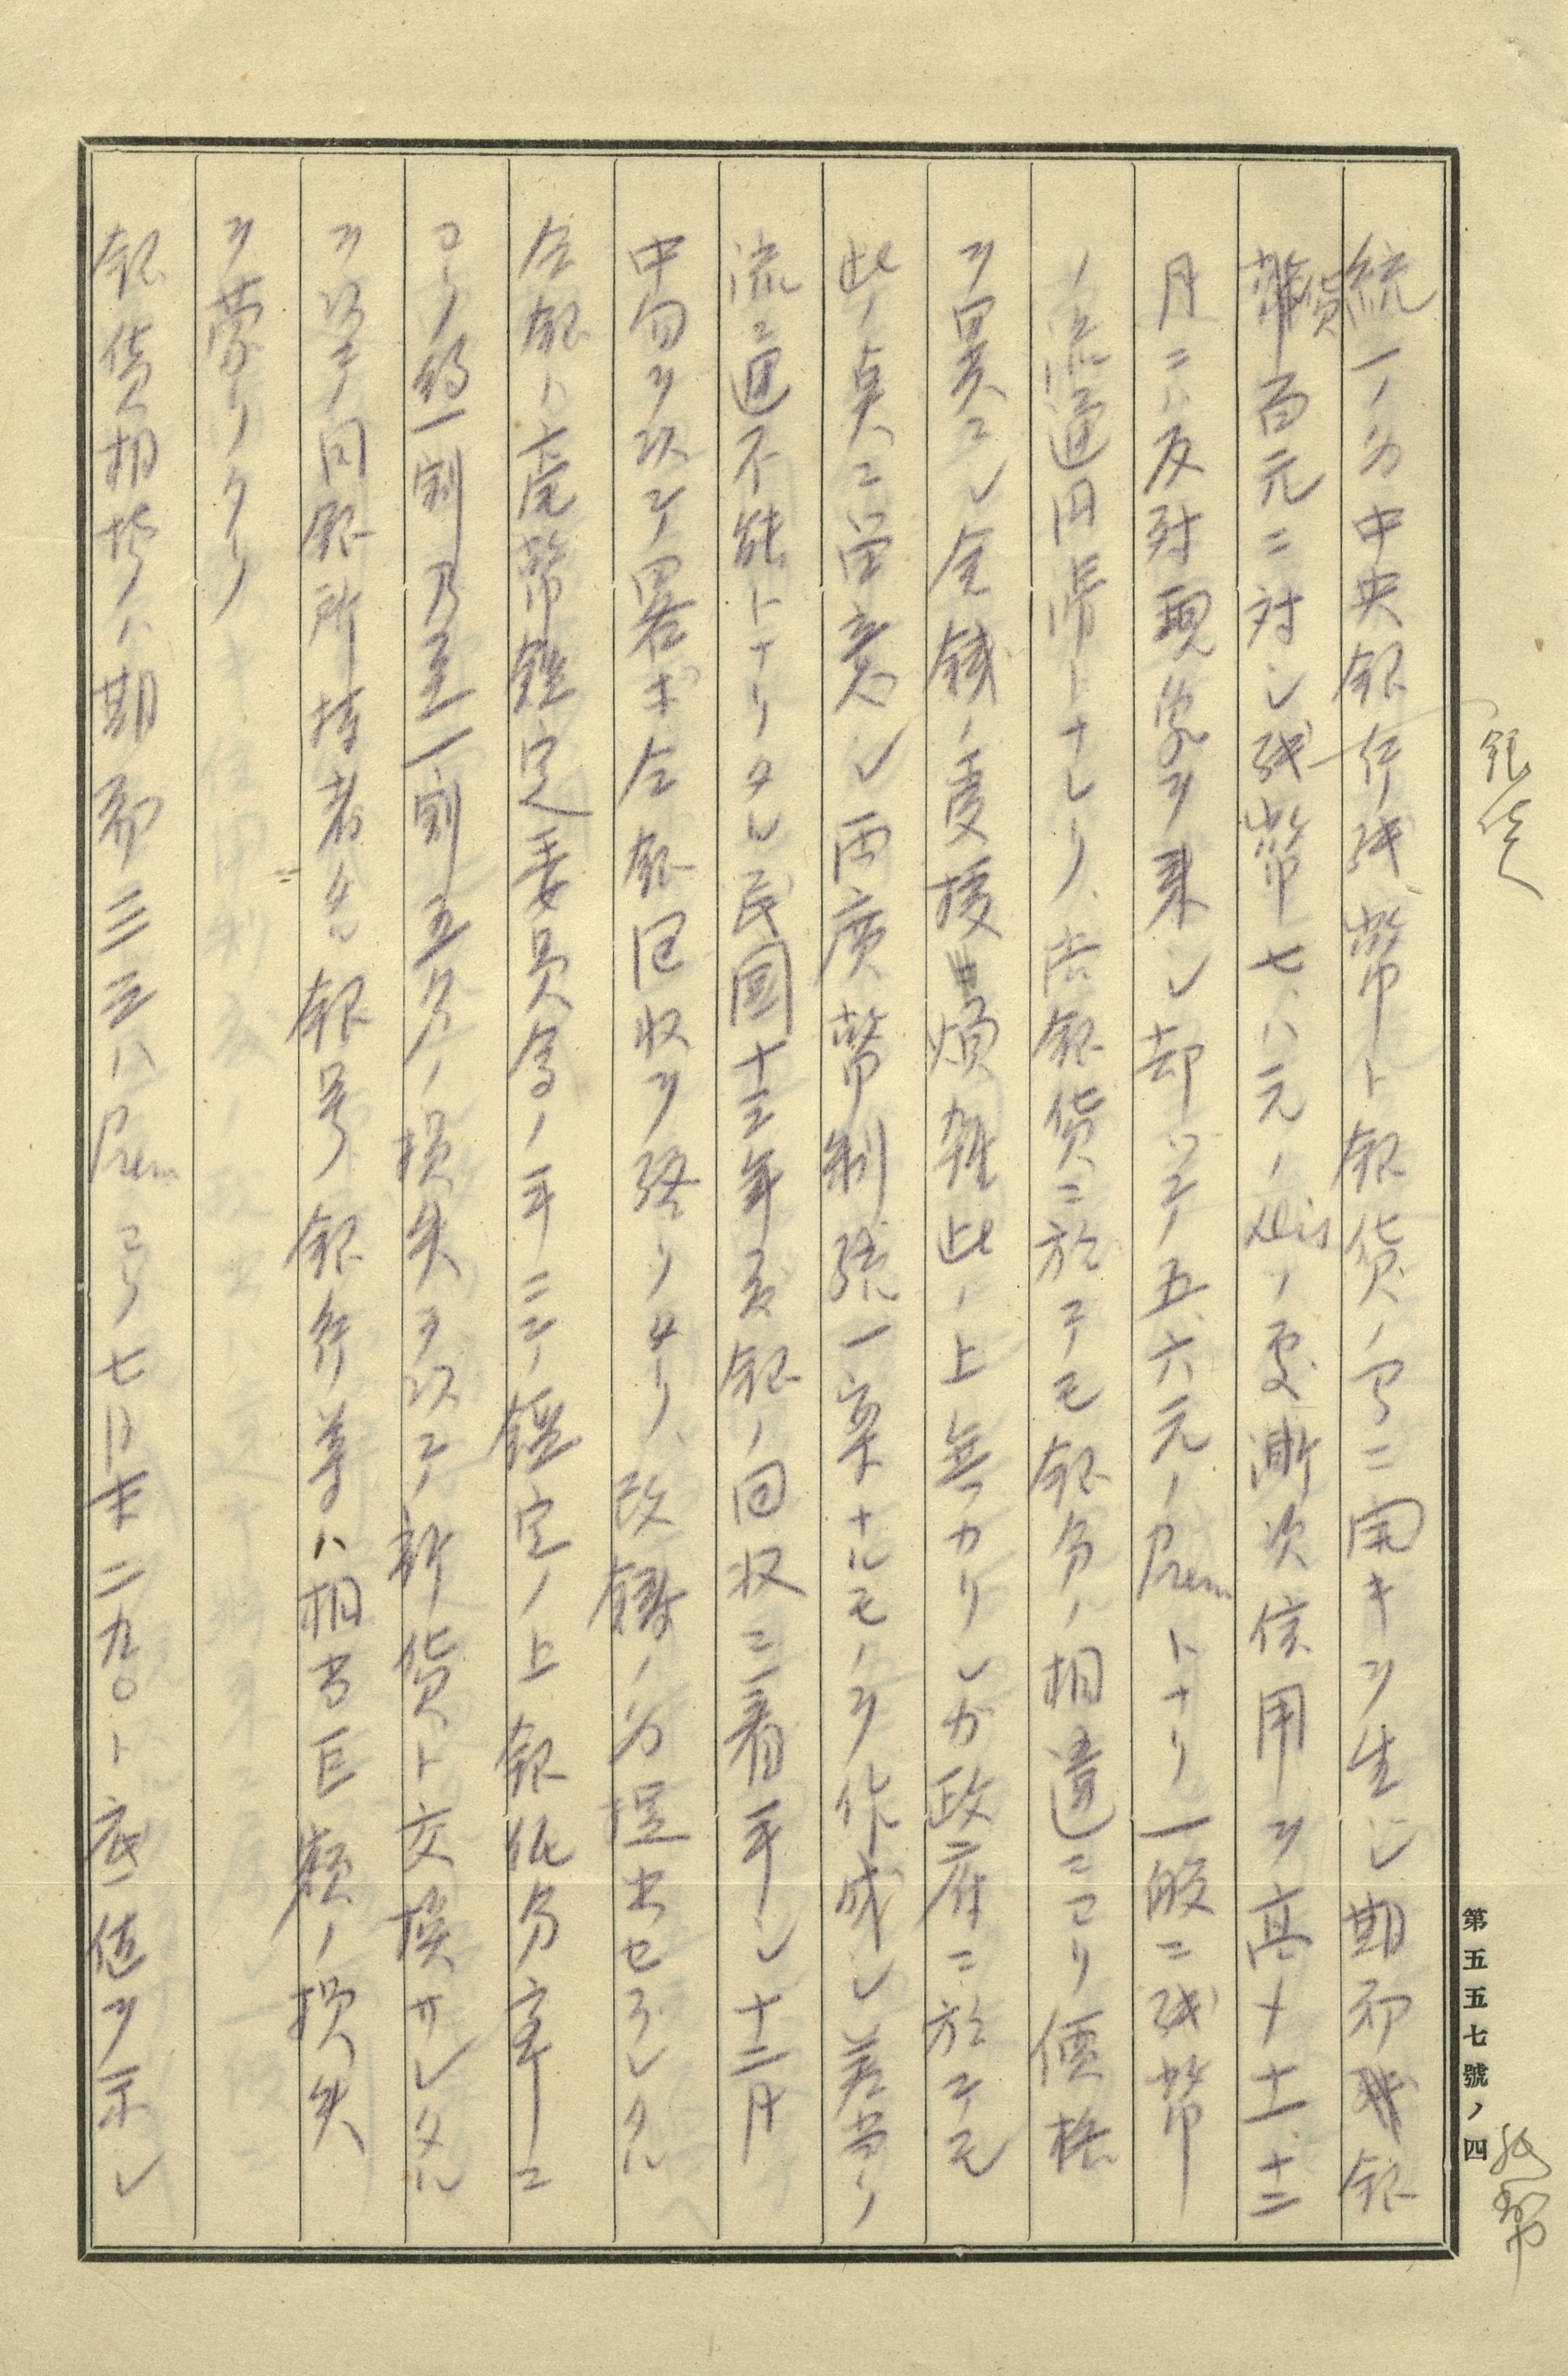 統一ノ為中央銀行紙幣ト銀貨ノ間ニ開キヲ生ジ期初銀
幣貨百元ニ対シ紙幣七、八元ノDisノ処漸次信用ヲ高メ十一、十二
月ニハ反対現象ヲ来シ却ツテ五、六元ノPremトナリ一般ニ紙幣
ノ流通円滑トナレリ、尚銀貨ニ於テモ銀分ノ相違ニヨリ価格
ヲ異ニシ金銭ノ受授煩雑此ノ上無カリシガ政府ニ於テモ
此ノ点ニ留意シ両広幣制統一案ナルモノヲ作成シ差当リ
流通不能トナリタル民国十三年度銀ノ回収ニ着手シ十二月
中旬ヲ以テ略ボ全銀回収ヲ終リタリ、改鋳ノ為提出セラレタル
全銀ハ広幣鑑定委員会ノ手ニテ鑑定ノ上銀低分率ニ
ヨリ約一割乃至一割五分ノ損失ヲ以テ新貨ト交換サレタル
ヲ以テ同銀所持者タル銀号銀行等ハ相当巨額ノ損失
ヲ蒙リタリ
銀貨相場ハ期初三三八Premヨリ七月末二九〇ト底値ヲ示シ
銀貨
第五五七號ノ四
紙幣